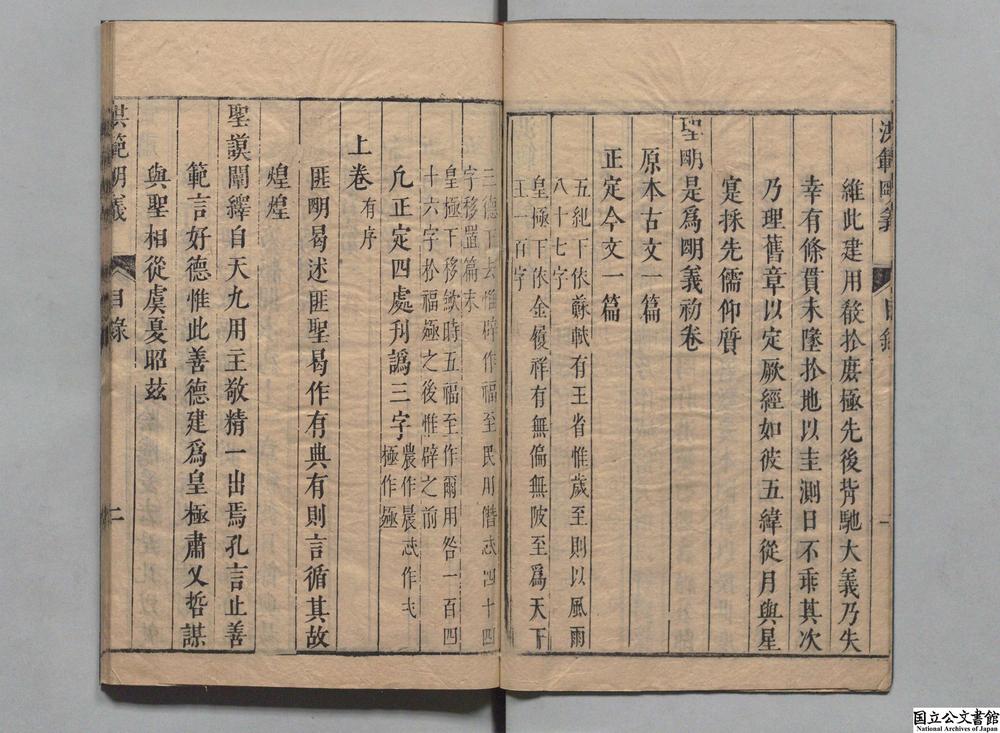 洪範明義 目錄 一
維此建用敎於庶極先後背馳大義乃失
幸有條貫未墜於地以圭測日不乖其次
乃理舊章以定厥經如彼五緯從月與星
寔採先儒仰質
聖明是爲明義初卷
原本古文一篇
正定今文一篇
五紀下依蘇軾有王省惟歲至則以風雨
八十七字
皇極下依金履祥有無偏無陂至爲天下
王一百字
三德下去惟辟作福至民用僭忒四十四
字移置篇末
皇極下移歛時五福至作爾用咎一百四
十六字於福極之後惟辟之前
凢正定四處刋譌三字農作晨忒作弋極作殛
上卷有序
匪明曷述匪聖曷作有典有則言循其故
煌煌
聖謨闡繹自天九用主敬精一出焉孔言止善
範言好德惟此善德建爲皇極肅乂哲謀
與聖相從虞夏昭茲
洪範明義 目錄 二
国立公文書館
National Archives of Japan